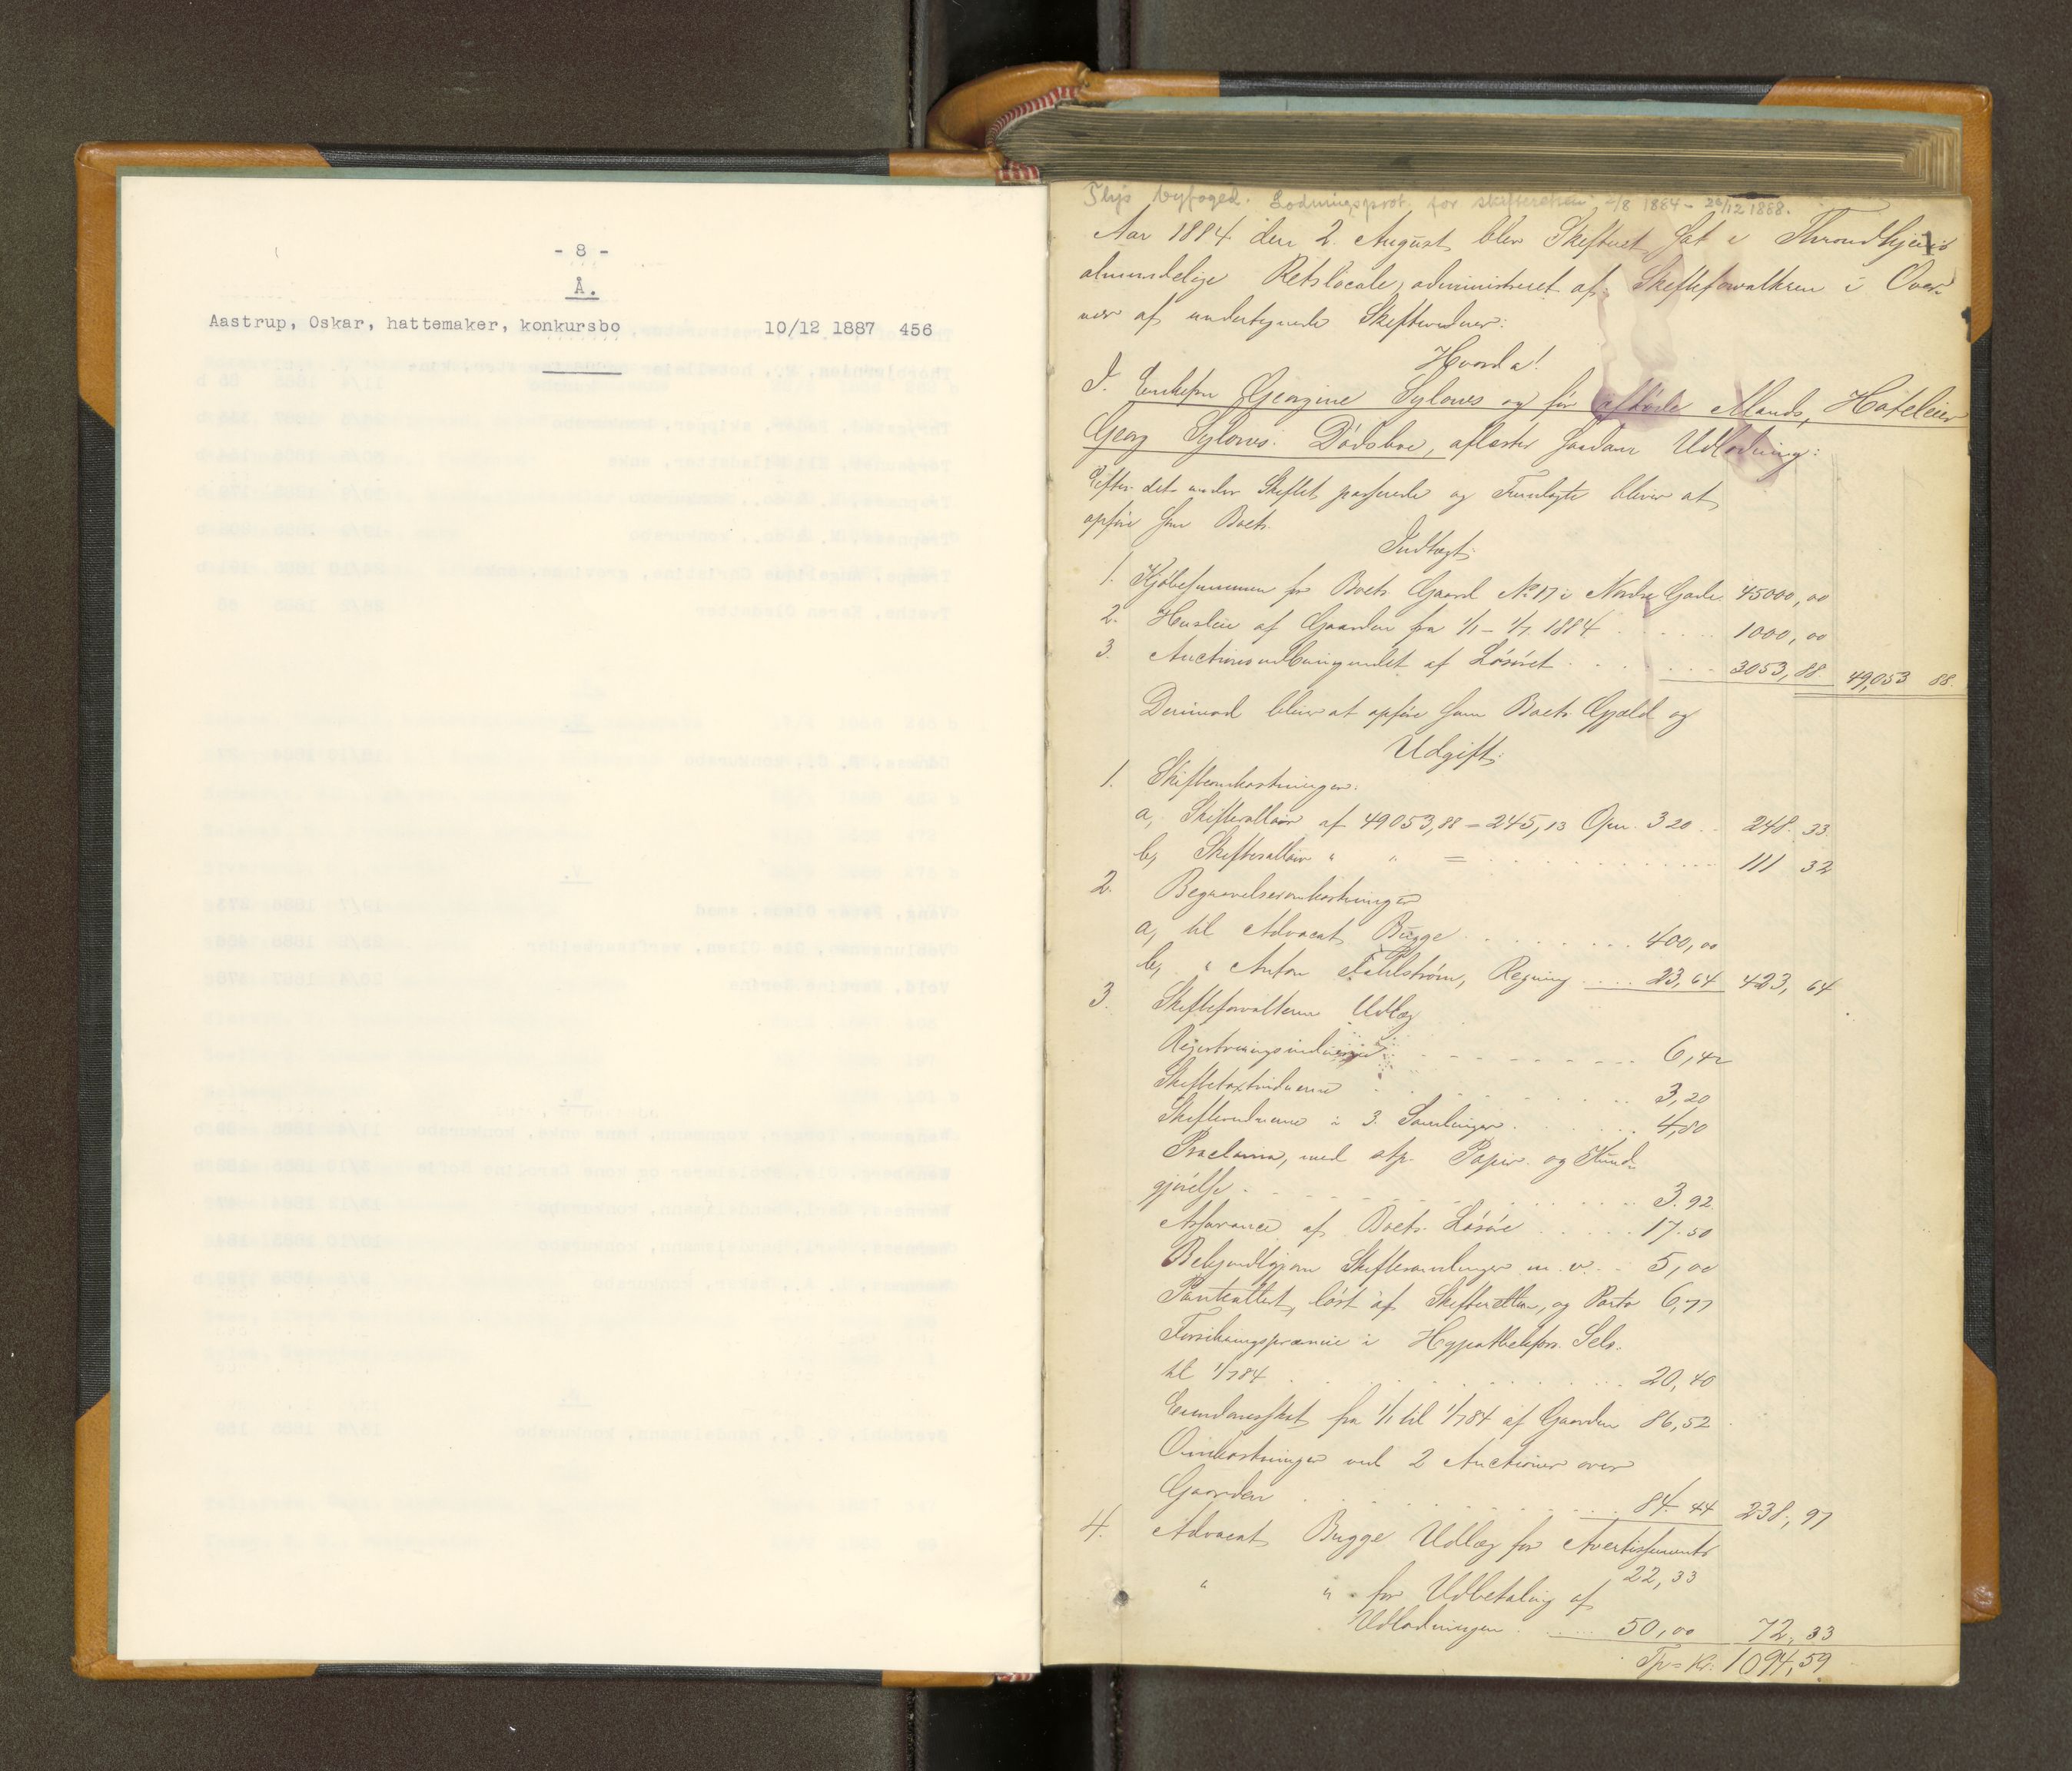 - 8 -
Å.
Aastrup, Oskar, hattemaker, konkursbo 10/12 1887 456
Thjs byfoged. Lodningsprot. for skifteretten 2/8 1884 - 28/12 1888.
1
Aar 1884 den 2. August blev Skifteret sat i Throndhjems
almindelige Retslocale, administreret af Skifteforvalteren i Over-
vær af undertegnede Skiftevidner:
Hvorda!
I. Enkefru Georgine Sylows og før afdøde Mands, Hoteleier
Georg Sylows Dødsboe, aflæstes saadan Udlodning:
Efter det under Skiftet passerede og Fremlagte bliver at
opføre som Boets
Indtægt:
1. Kjøbesummen for Boets Gaard No 17 i Nordre Gade 45000,00
2. Husleie af Gaarden fra 1/1 - 1/7 1884 1000,00
3. Auctionsudbringendet af Løsøret 3053,88 49,053 88.
Derimod bliver at opføre som Boets Gjæld og
Udgift:
1. Skifteomkostninger:
a, Skifte af 49053,88 = 245,13 Opn. 3 20 248. 33.
b, Skifte " " = 111 32
2. Begravelsesomkostninger
a, til Advocat Bugge 400,00
b, " Anton Fahlstrøm, Regning 23,64 423,64
3. Skifteforvalterens Udlæg
Registreringsvidnerne 6,42
Skiftetaxtvidnerne 3,20
Skiftevidnerne i 3 Samlinger 4,80
Proclama, med stp. Papir og Kund-
gjørelse 3.92.
Assurance af Boets Løsøre 17.50
Bekjendtgjøre Skiftesamlinger m. v. 5,00
Panteattest, løst af Skifteretten, og Porto 6,77
Forsikringspræmie i Hypothekfors. Sels.
til 1/7 84 20,40
Eiendomsskat fra 1/1 til 1/7 84 af Gaarden 86,52
Omkostninger ved 2 Auctioner over
Gaarden 84 44 238,97
4. Advocat Bugge Udlæg for Avertissements
22,33
" " for Udbetaling af
Udlodningen 50,00 72,33
Tp = Kr. 1094,59